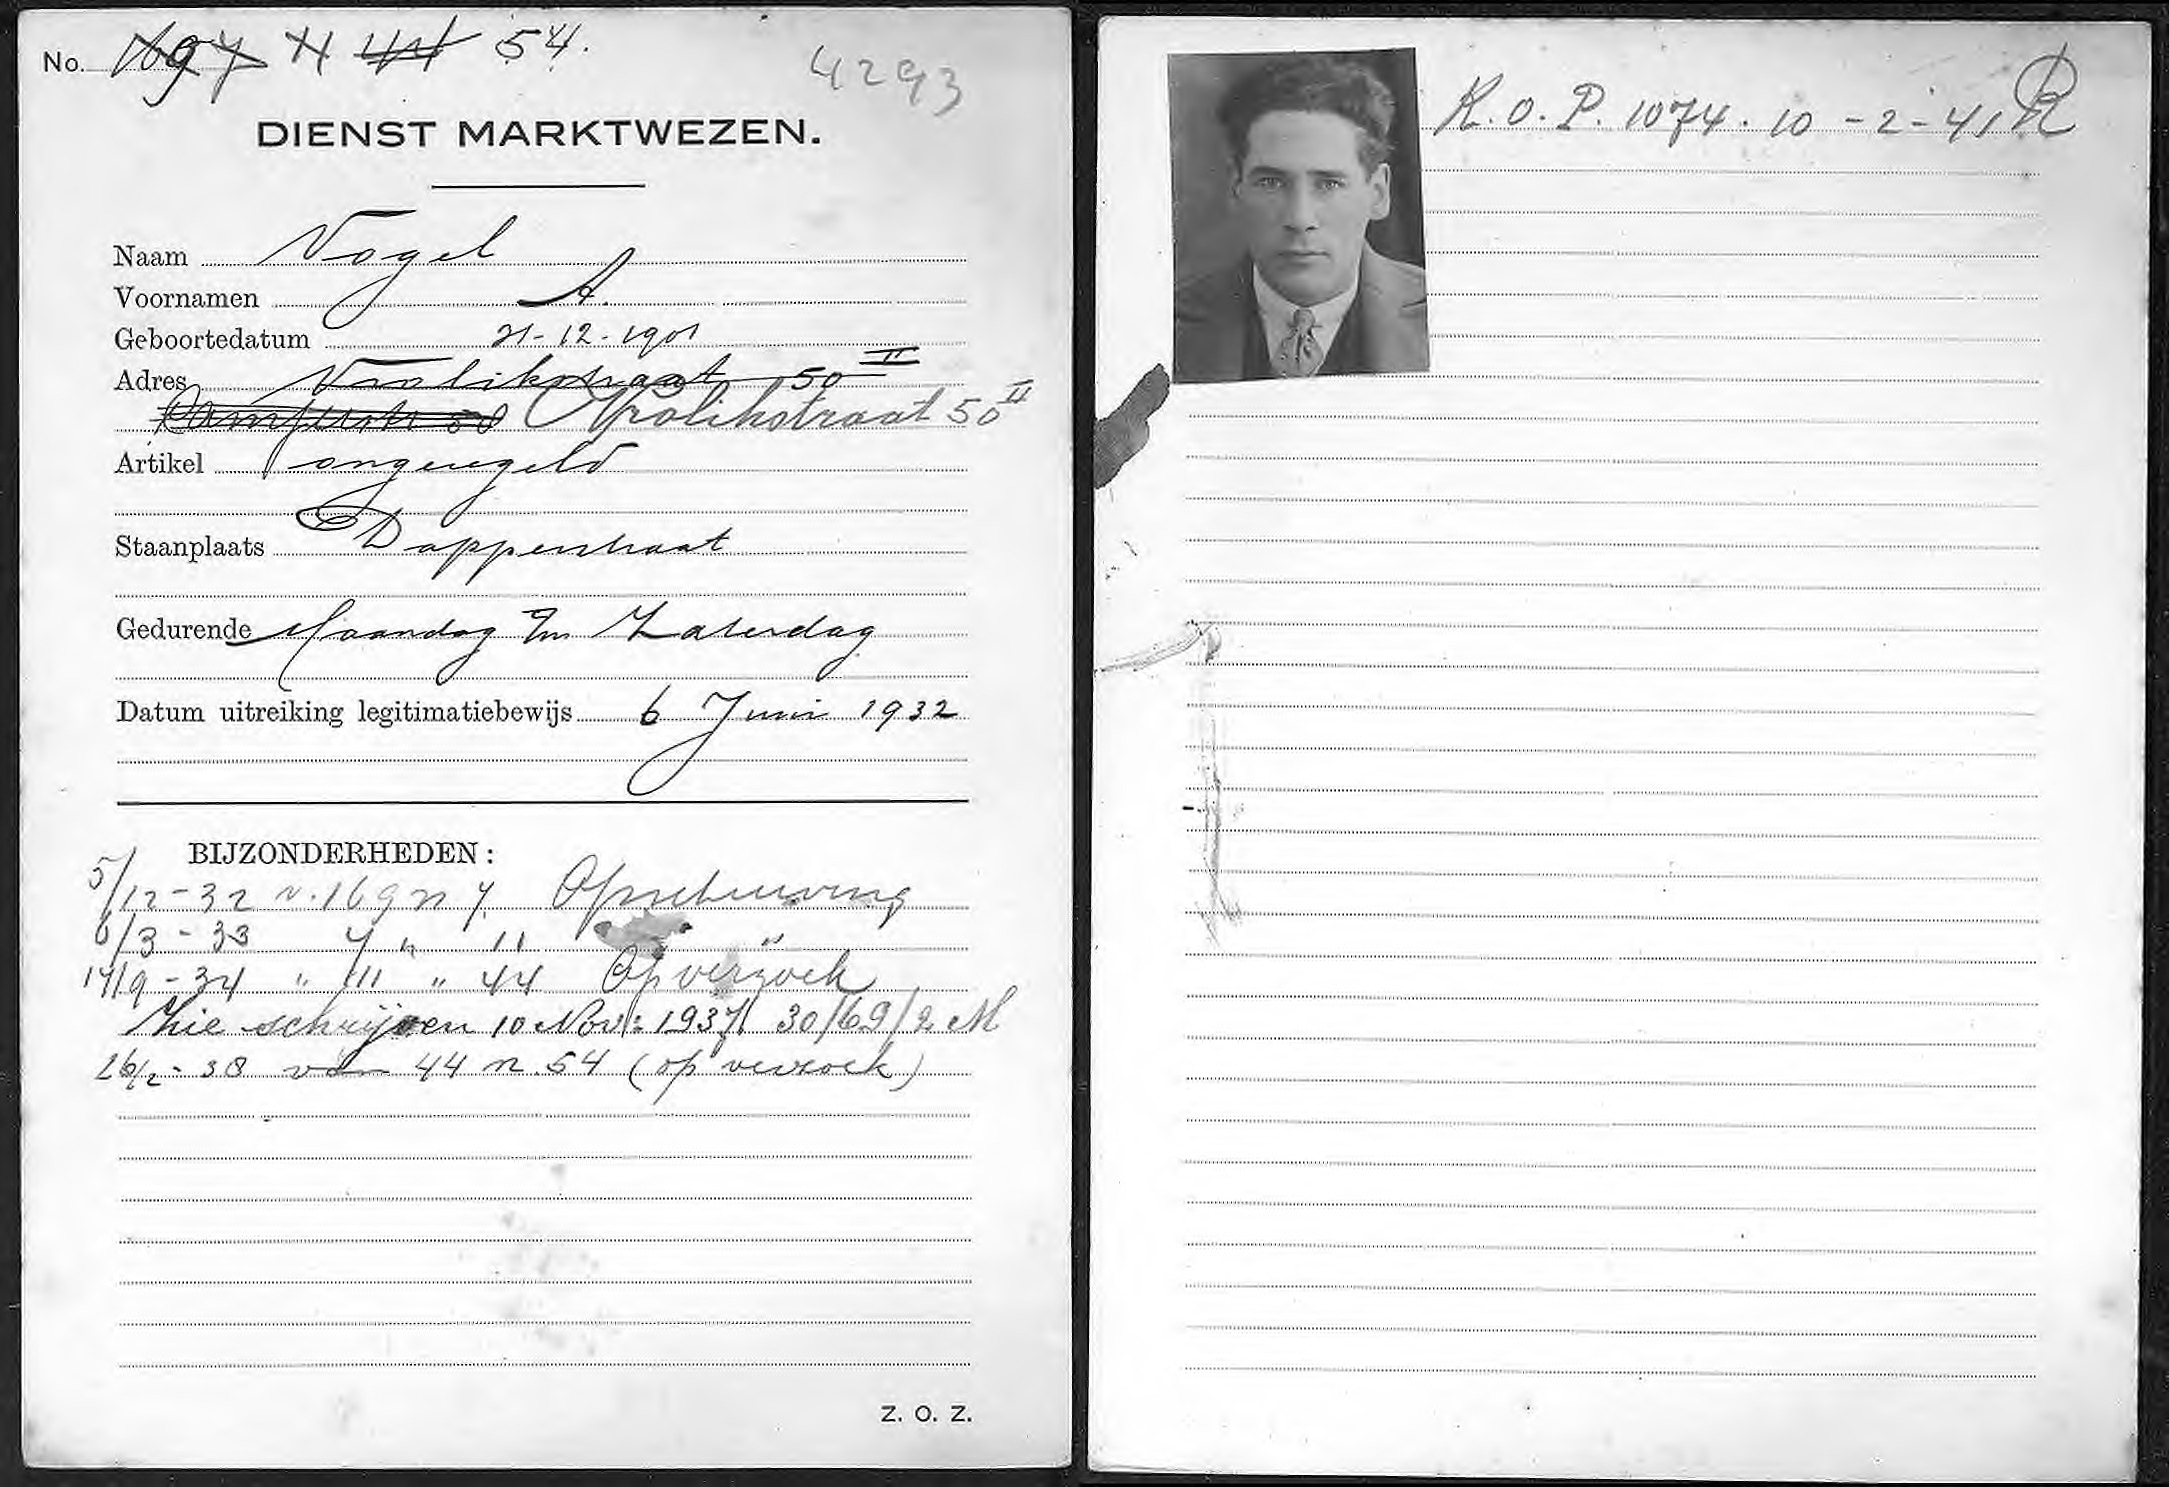 No. 169 7 11 44 54.
4293
DIENST MARKTWEZEN.
Naam Vogel
Voornamen A.
Geboortedatum 21-12-1901
Adres Vrolikstraat 50 II
Vrolikstraat 50 II
Artikel ongeregeld
Staanplaats Dapperstraat
Gedurende Maandag t/m Zaterdag
Datum uitreiking legitimatiebewijs 6 Juni 1932
BIJZONDERHEDEN:
5/12-32 v. 169 n 7. Opschuiving
6/3-33 7 " 11 "
14/9-34 " 11 " 44 Op verzoek
Zie schrijven 10 Nov: 1937 30/69/2 M
26/2-38 van 44 n. 54 (op verzoek)
Z. O. Z.
K.O.P. 1074. 10-2-41 R